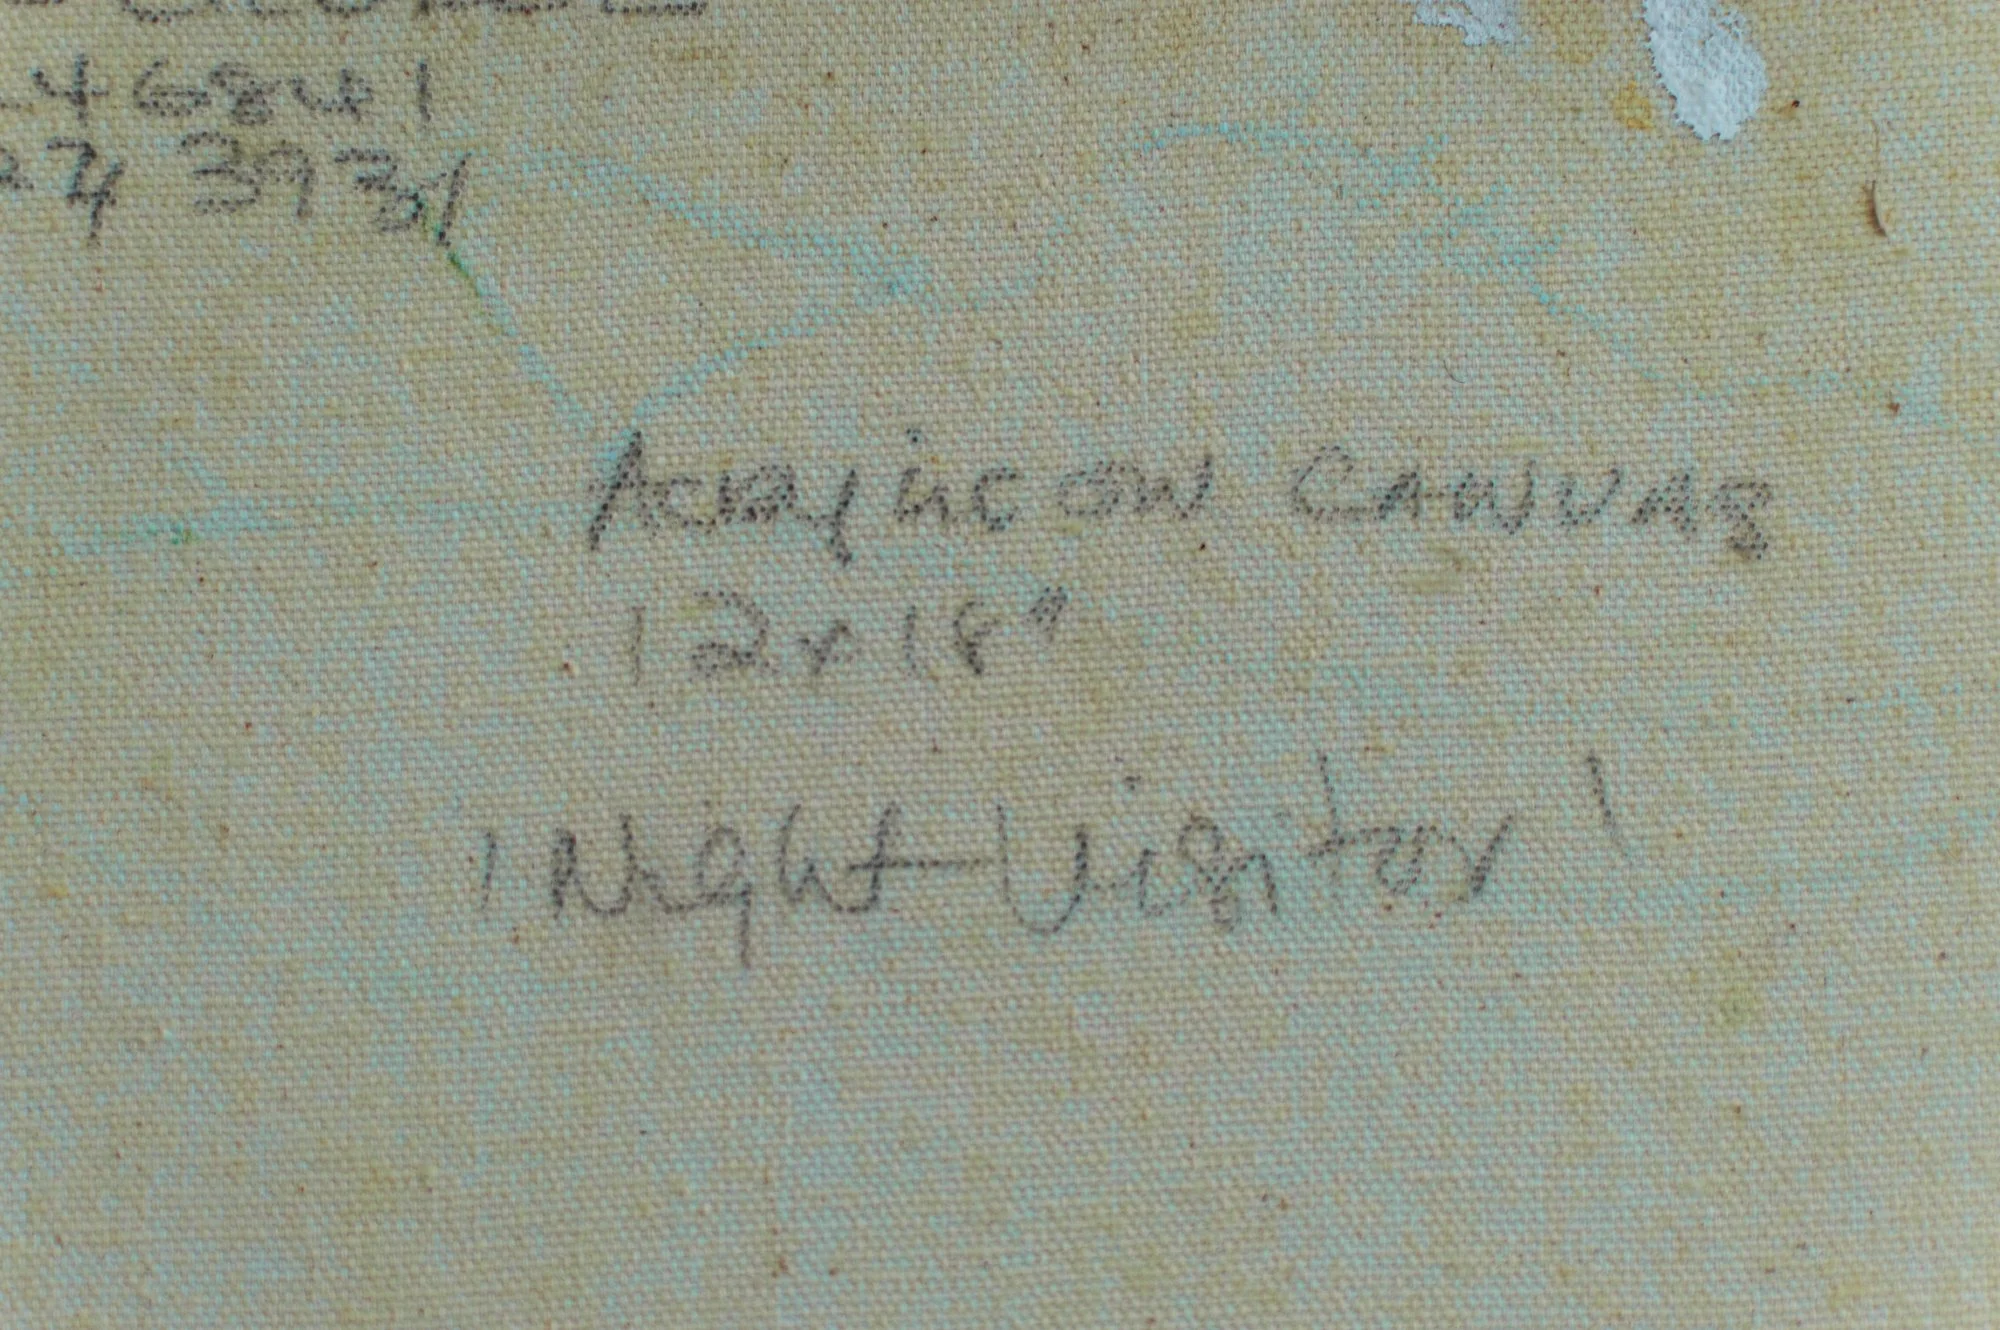 46841
24 3931
Acrylic on CANVAS
12x18"
'Night Visitor'